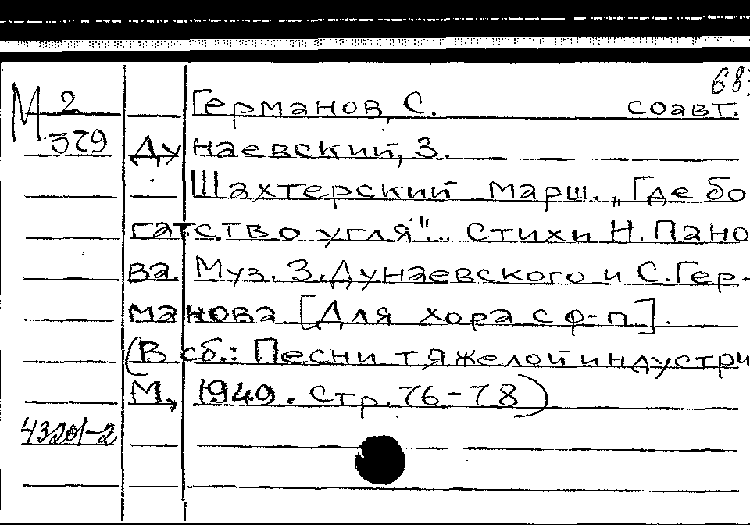 683
М 2 Германов, С. соавт.
379 Дунаевский, З.
Шахтерский марш. „Где бо
гатство угля". Стихи Н. Пано
ва. Муз. З. Дунаевского и С. Гер-
манова [Для хора с ф-п].
(В сб.: Песни тяжелой индустри
М., 1949. Стр. 76-78)
43201-2